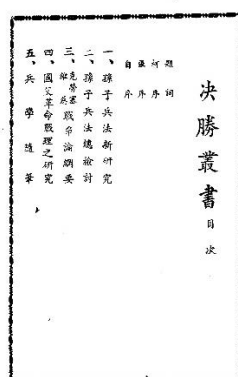 決勝叢書 目次
題詞
何序
張序
自序
一、孫子兵法新研究
二、孫子兵法總檢討
三、克勞塞維茨戰爭論綱要
四、國父革命戰理之研究
五、兵學隨筆